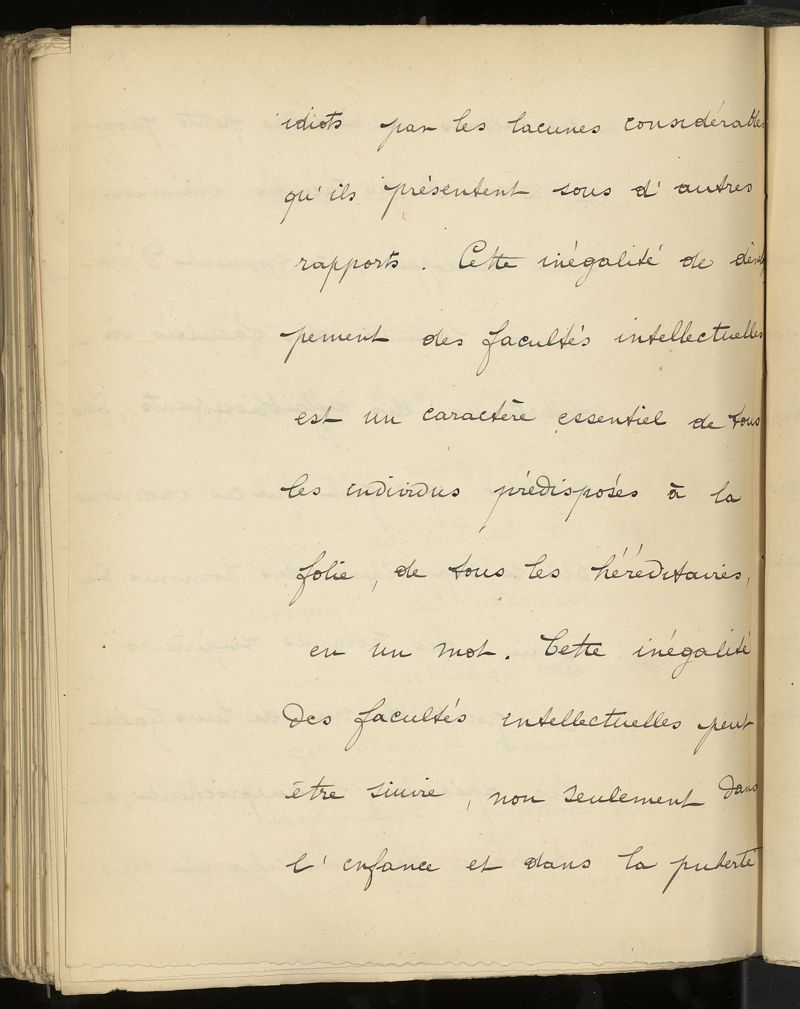 idiots par les lacunes considérables
qu'ils présentent sous d'autres
rapports. Cette inégalité de dévelop
pement des facultés intellectuelles
est un caractère essentiel de tous
les individus prédisposés à la
folie, de tous les héréditaires,
en un mot. Cette inégalité
des facultés intellectuelles peut
être suivie, non seulement dans
l'enfance et dans la puberté